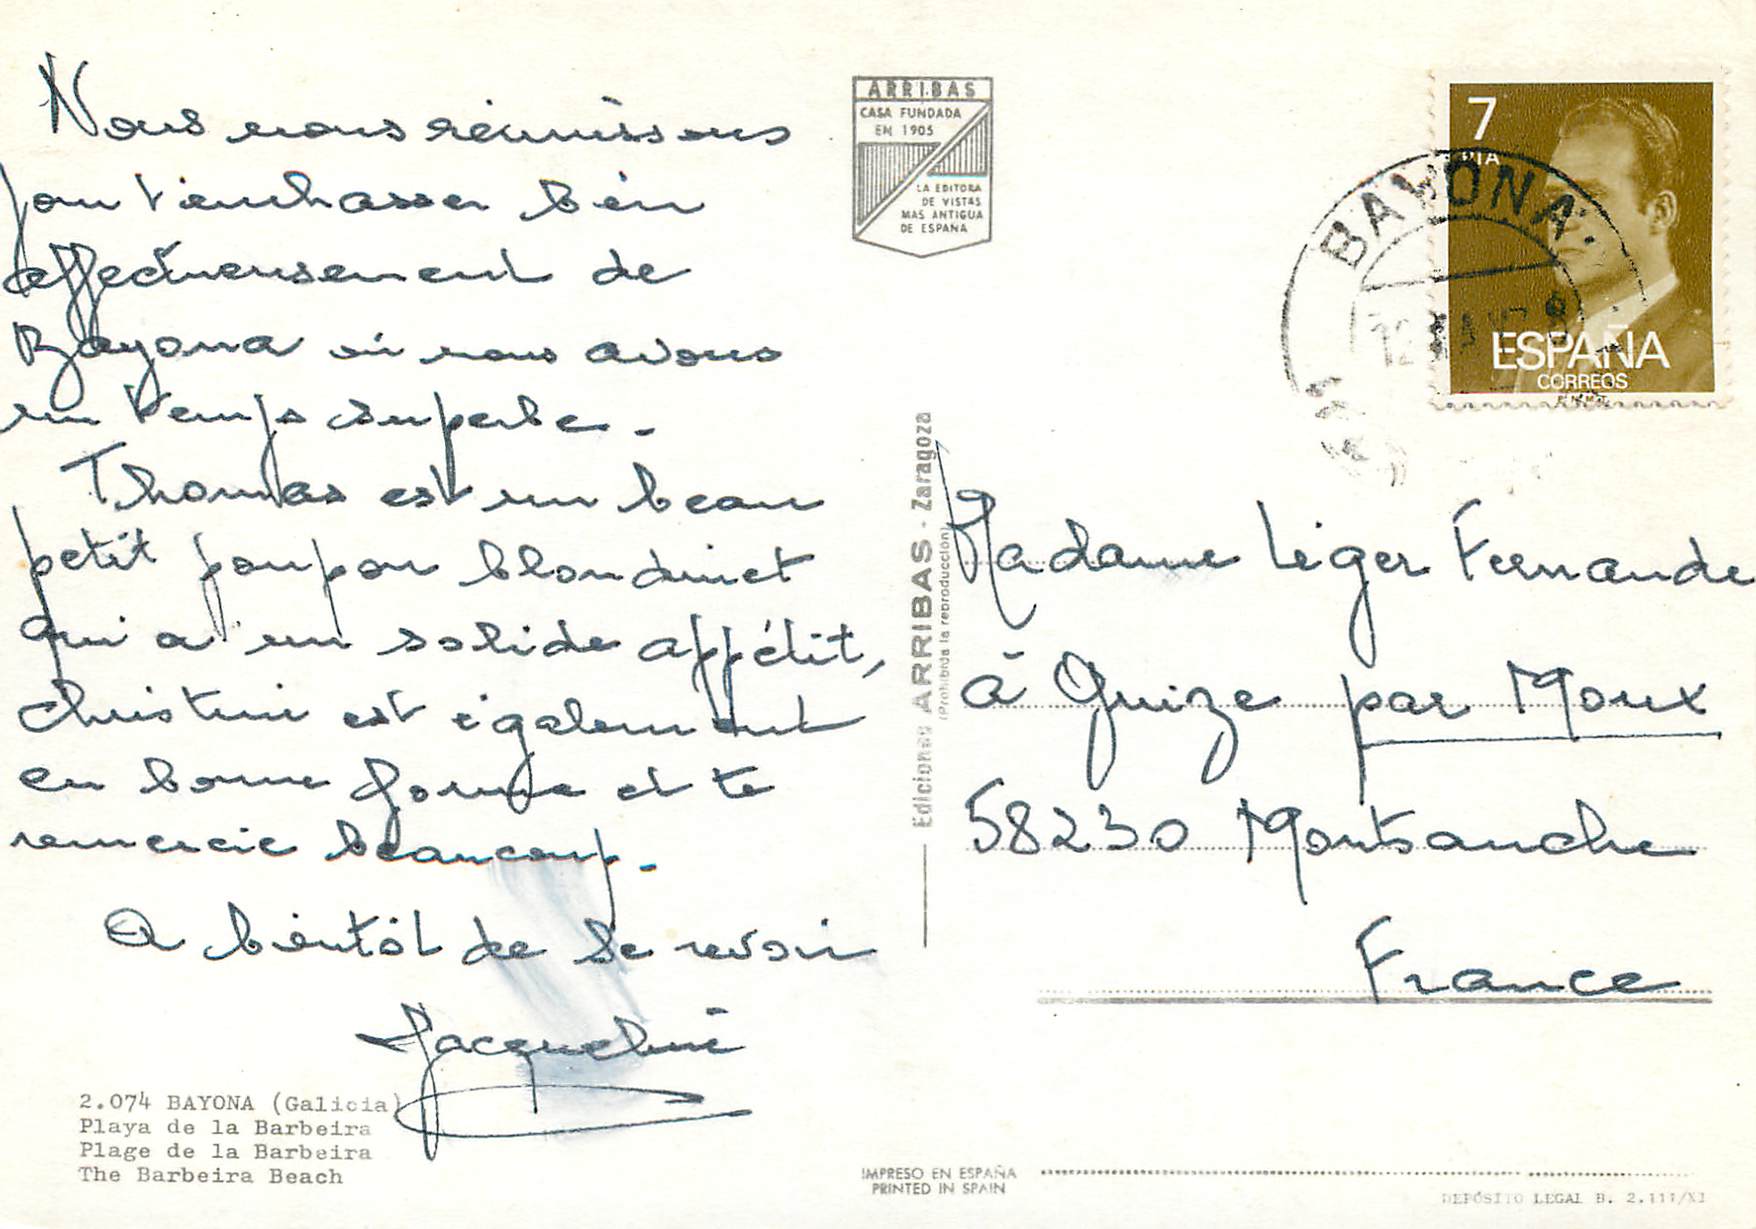 Nous nous réunissons
pour t'embrasser bien
affectueusement de
Bayona où nous avons
un temps superbe.
Thomas est un beau
petit poupon blondinet
qui a un solide appétit,
Christine est également
en bonne forme et te
remercie beaucoup.
A bientôt de se revoir
Jacqueline
2.074 BAYONA (Galicia)
Playa de la Barbeira
Plage de la Barbeira
The Barbeira Beach
ARRIBAS
CASA FUNDADA
EN 1905
LA EDITORA
DE VISTAS
MAS ANTIGUA
DE ESPAÑA
Ediciones ARRIBAS - Zaragoza
(Prohibida la reproducción)
7
PTA
ESPAÑA
CORREOS
BAYONA
Madame Léger Fernande
à Guize par Moux
58230 Montsauche
France
IMPRESO EN ESPAÑA
PRINTED IN SPAIN
DEPÓSITO LEGAL B. 2.111/XI